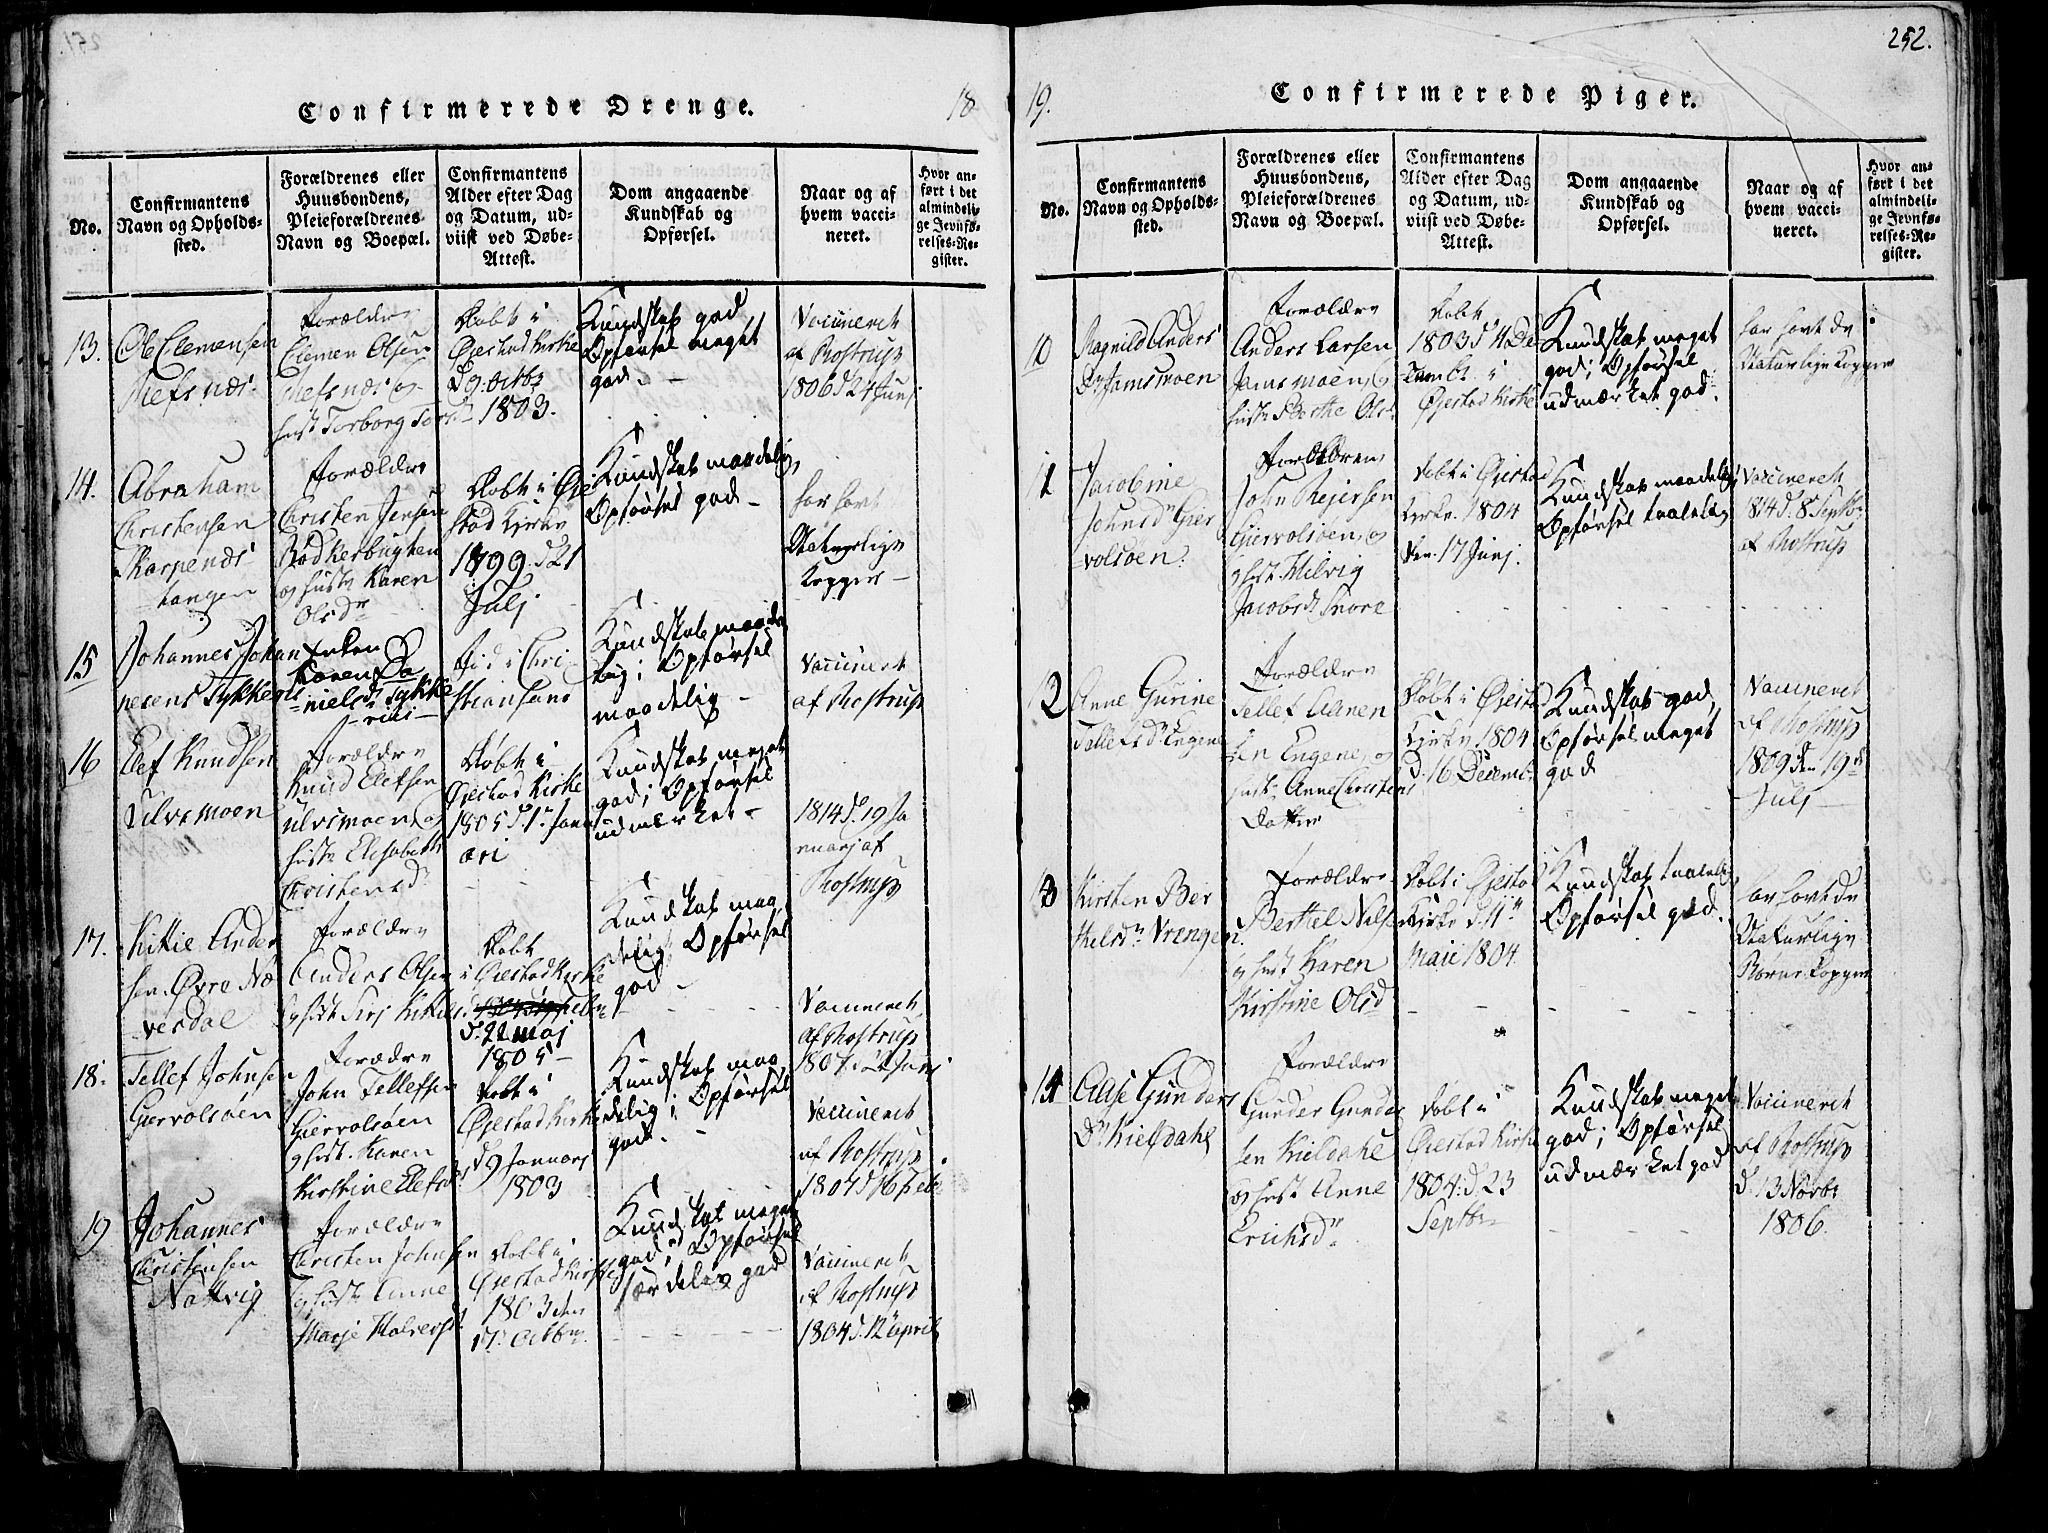 252.
Confirmerede Drenge.
18
No.
Confirmantens Navn og Opholds-sted.
Forældrenes eller Huusbondens, Pleieforældrenes Navn og Boepæl.
Confirmantens Alder efter Dag og Datum, ud-viist ved Døbe-Attest.
Dom angaaende Kundskab og Opførsel.
Naar og af hvem vacci-neret.
Hvor an-ført i det almindeli-ge Jevnfø-relses-Re-gister.
13.
Ole Clemensen
Næfsnæs
Forældre
Clemen Olsen
Næfsnæs og
hust. Torborg
Døbt i
Øiestad Kirke
D. 9. octbr
1803.
Kundskab god
Opførsel meget
god. -
Vaccineret
af Rostrup
1806 d 24 Junj
14.
Abraham
Christensen
Skarpenæs
tangen
Forældre
Christen Jensen
Bødkerbugten
og hust. Karen
Olsdr
Døbt i Øie
stad Kirke
1799. d. 21
Julj
Kundskab maadelig,
Opførsel god -
har havt
Naturlige
Kopper -
15
Johannes Johan
nesens Tykkeris
Enken
Karen Da
nielsdr Tykke
riis
fød i Chri
stiansand
Kundskab maade
lig; Opførsel
maadelig -
Vaccineret
af Rostrup
16
Elef Knudsen
Ulvemoen
Forældre
Knud Elefsen
Ulvemoen og
hust. Elisabeth
Christensdr
Døbt i
Øiestad Kirke
1805 d. 1. Janu
ari
Kundskab meget
god; Opførsel
udmærket -
1814 d. 19 Ja
nuarj af
Rostrup
17.
Kittil Ander
sen Øvre Næ
verdal
Forældre
Anders Olsen
og hust. Sirj Kittels
Døbt
i Øiestad Kirke
d. 22 Maj
1805 -
Kundskab maa
delig, Opførsel
god -
Vaccineret
af Rostrup
1807. 24 Junj
18.
Tellef Johnsen
Giervolsøen
Forældre
John Tellefsen
Giervolsøen
og hust. Karen
Kirstine Elefsdr
Døbt i
Øiestad Kirke
d. 9 Januarj
1803
Kundskab maa
delig; Opførsel
god. -
Vaccineret
af Rostrup
1807 d 16 feb
19
Johannes
Christensen
Natvig
Forældre
Christen Johnsen
og hust. Anne
Marje Halvorsd
Døbt i
Øiestad Kirke
1803 den
17. Octbr.
Kundskab meget
god, Opførsel
særdeles god
Vaccineret
af Rostrup
1804 d. 12 april
19.
Confirmerede Piger.
No.
Confirmantens Navn og Opholds-sted.
Forældrenes eller Huusbondens, Pleieforældrenes Navn og Boepæl.
Confirmantens Alder efter Dag og Datum, ud-viist ved Døbe-Attest.
Dom angaaende Kundskab og Opførsel.
Naar og af hvem vacci-neret.
Hvor an-ført i det almindeli-ge Jevnfø-relses-Re-gister.
10
Ragnild Anders
Dr Jamsmoen
Forældre
Anders Larsen
Jamsmoen og
hustr. Berthe Olsd
Døbt
1803 d. 4 De
cembr. i
Øiestad Kirke
Kundskab meget
god; Opførsel
udmærket god.
har havt de
Naturlige Kopper
11
Jacobine
Johnsdr Gier
volsøen.
Forældren
John Reiersen
Giervolsøen,
og hust. Hilvig
Jacobsdr Snore
Døbt i Øiestad
Kirke. 1804
den. 17 Junj.
Kundskab maadelig,
Opførsel taalelig
Vaccineret
1814 d. 8 Septbr
af Rostrup
12
Anne Gurine
Tellefsdr Engene
Forældre
Tellef Aanen
sen Engene, og
hust. Anne Christens
Datter
Døbt i Øiestad
Kirke 1804
d. 16 Decemb.
Kundskab god,
Opførsel meget
god
Vaccineret
af Rostrup
1809 den 19de
Julj
13
Kirsten Ber
thelsdr Vrengen.
Forældre
Berthel Nilsen
og hust Karen
Kirstine Olsd
Døbt i Øiestad
Kirke d. 11te
Maii 1804.
Kundskab taalelig
Opførsel god.
har havt de
Naturlige
Børne Kopper
14
Aasje Gunders
Dr Kieldahl
Forældre
Gunder Gunder
sen Kieldahl
og hust Anne
Erichsdr
Døbt i
Øiestad Kirke
1804. d. 23
Septbr
Kundskab meget
god; Opførsel
udmærket god
Vaccineret
af Rostrup
d. 13 Novbr
1806.